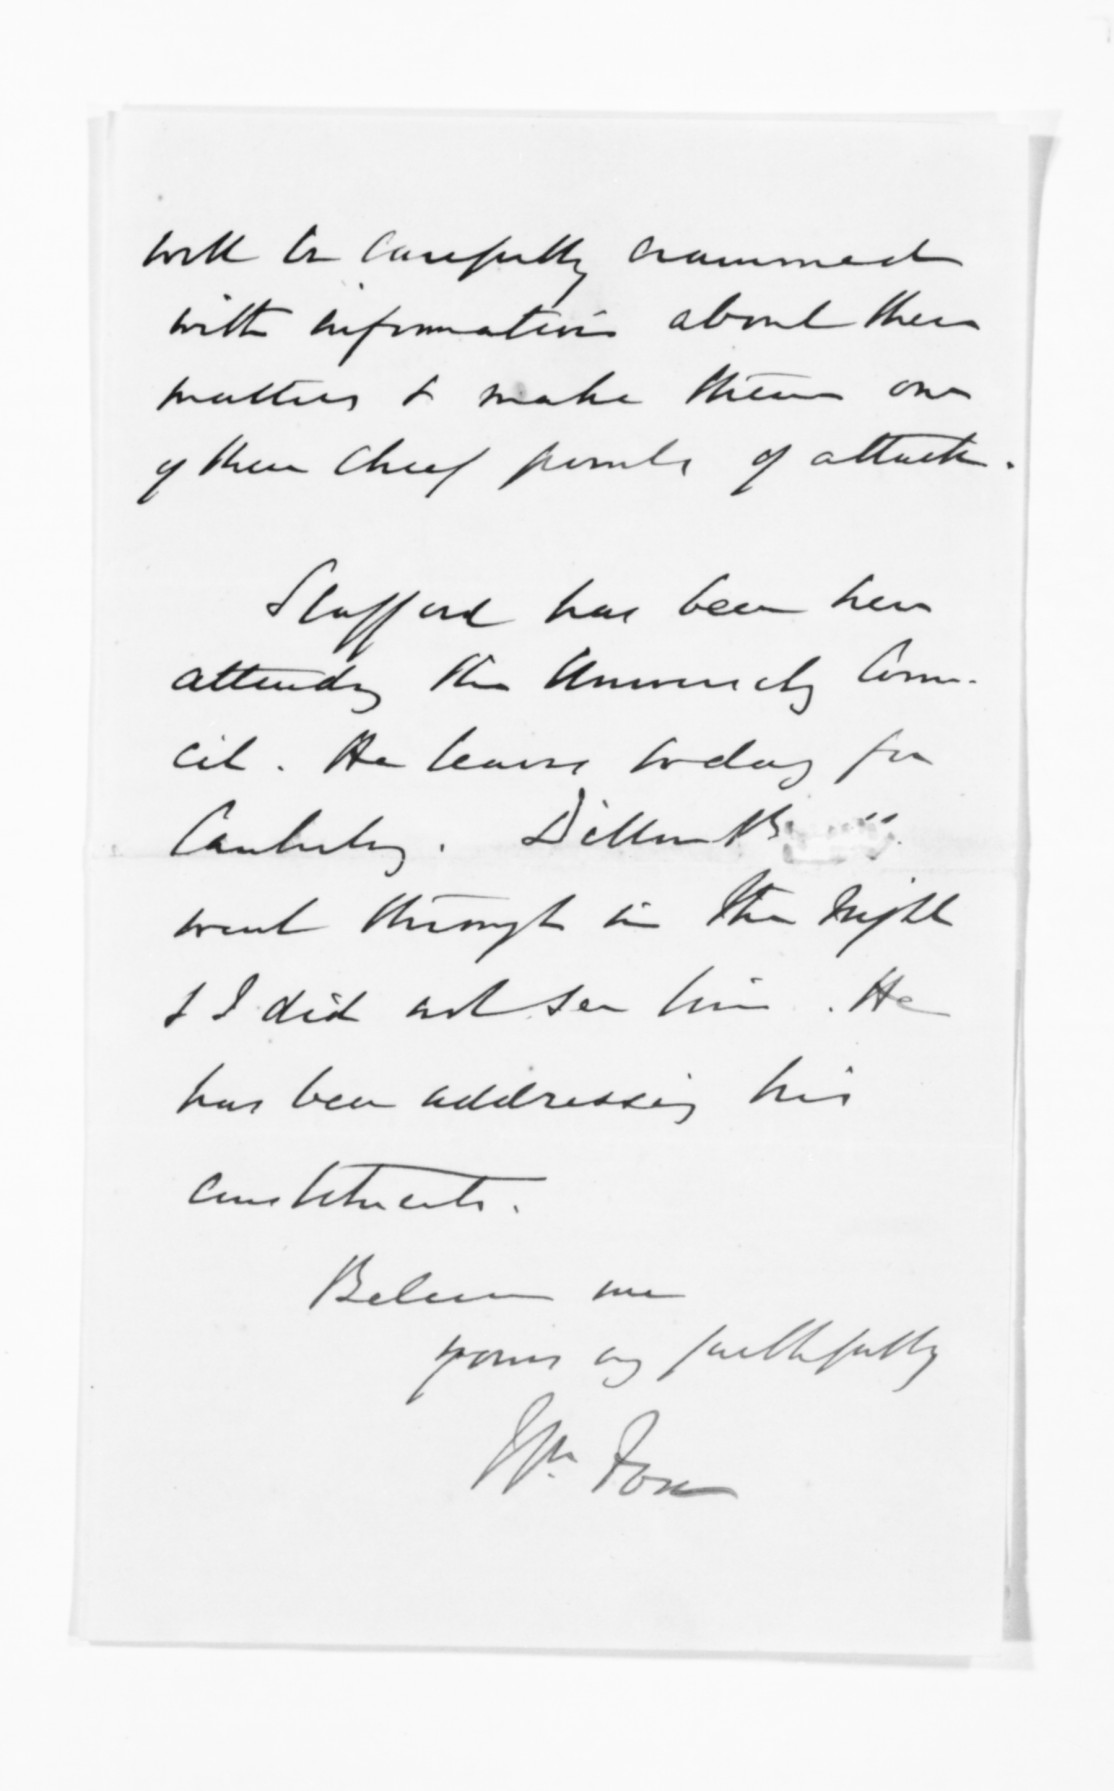 will be carefully crammed
with information about these
matters & make them one
of their chief points of attack.
Stafford has been here
attending the University Coun-
cil. He leaves today for
Canterbury. Dillon B
went through in the night
& I did not see him. He
has been addressing his
constituents.
Believe me
yours very faithfully
Wm Fox